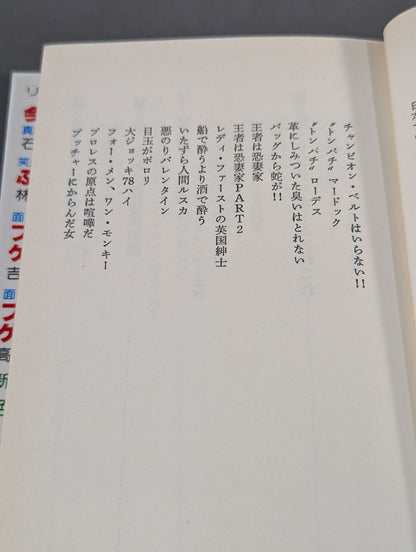 チャンピオン・ベルトはいらない!!
〝トンパチ〟マードック
〝トンパチ〟ローデス
革にしみついた臭いはとれない
バッグから蛇が!!
王者は恐妻家
王者は恐妻家PART2
レディ・ファーストの英国紳士
船で酔うより酒で酔う
いたずら人間ルスカ
悪のりバレンタイン
目玉がポロリ
大ジョッキ78ハイ
フォー・メン、ワン・モンキー
プロレスの原点は喧嘩だ
ブッチャーにからんだ女
リ
真
石
笑
ふ
林
面
フケ
吉
面
フケ
高
新